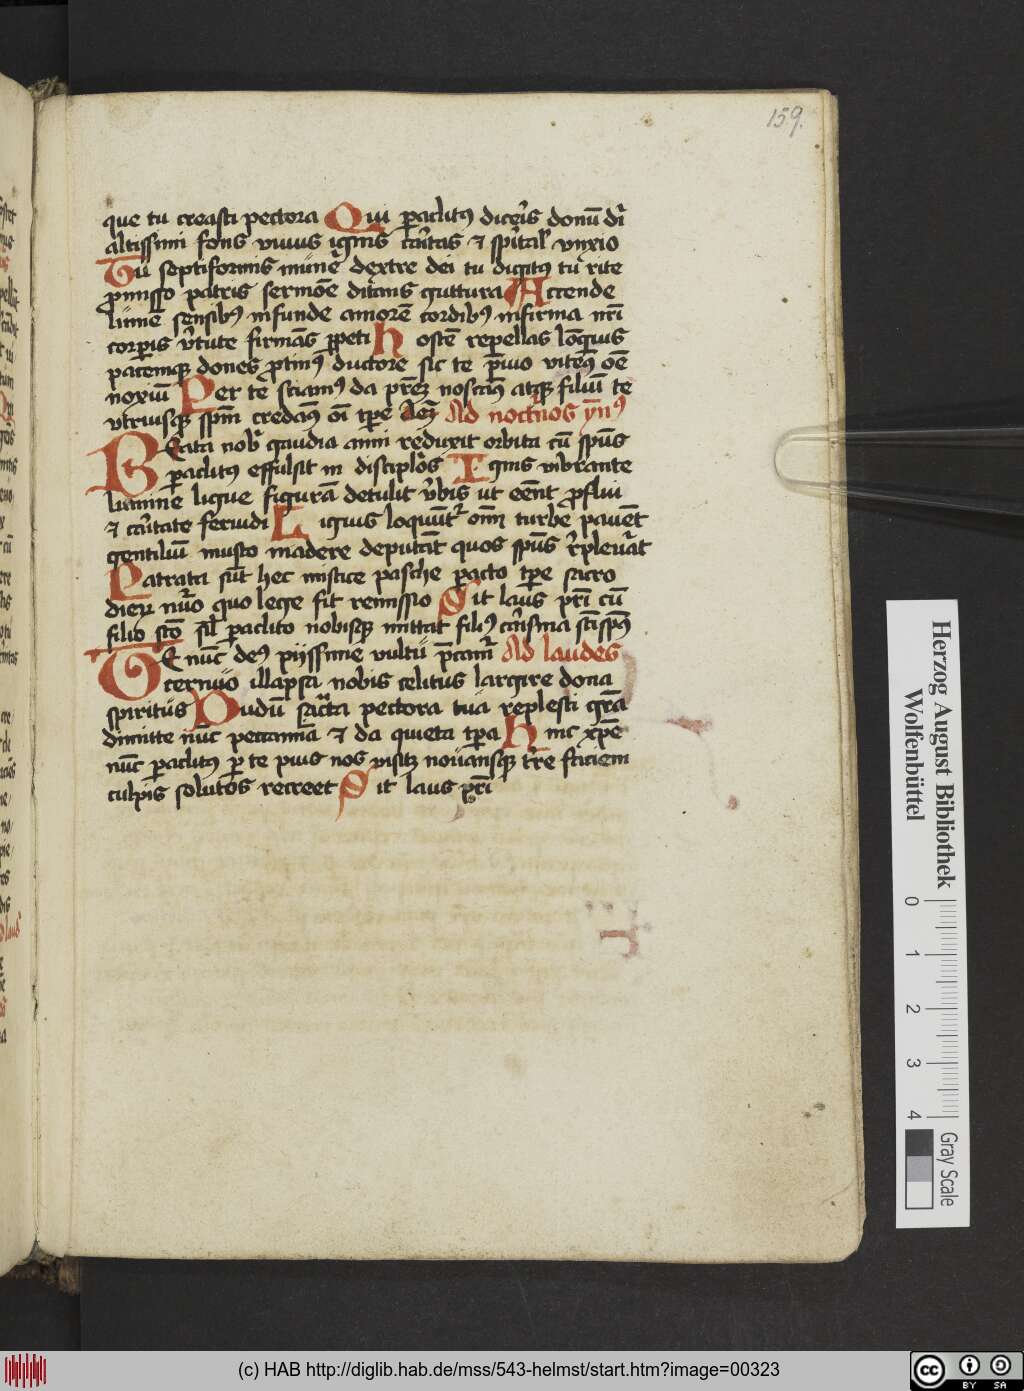 159.
que tu creasti pectora Qui paclitꝰ dicer̃s donũ dĩ
altissimi fons viuus ignis caritas ⁊ spirtal̕ vnxio
Tu septiformis munẽ dextre dei tu digitꝰ tu rite
promisso patris sermõe ditans guttura Accende
lumẽ sensibꝰ infunde amorẽ cordibꝰ infirma nrĩ
corꝑis v̾tute firmãs ꝑpeti hostẽ repellas lõgius
pacemqꝫ dones ꝓtinꝰ ductore sic te p̃uio vitemꝰ oẽ
noxiũ Per te sciamꝰ da p̃rẽ noscamꝰ atqꝫ filiũ te
vtriusqꝫ spm̃ credamꝰ oĩ tpẽ Amẽ Ad nocturnos ỹnꝰ
BEata nob̾ gaudia anni reduxit orbita cũ spũs
paclitꝰ effulsit in discipl̾os Ignis vibrante
luminẽ ligue figurã detulit v̾bis ut eẽnt ꝓflui
⁊ caritate feruidi Liguis loquũtᷣ oĩm turbe pauẽt
gentiliũ musto madere deputãt quos spũs r̾pleuãt
Patrata sũt hec mistice pasche ꝑacto tpẽ sacro
dieꝝ nu̾o quo lege fit remissio Sit laus pr̃i cũ
filio scõ sil̕ paclito nobisqꝫ mittat filiꝰ carisma sc̃i spũs
TE nũc deꝰ piissime vultu p̃camᷣ Ad laudes
cernuo illapsa nobis celitus largire dona
spiritus Dudũ sac̃ta pectora tua replesti gr̃a
dimitte nũc peccamĩa ⁊ da quieta tpa hinc xpẽ
nũc paclitꝰ ꝑ te pius nos visitꝫ nouansqꝫ tr̾e faciem
culpis solutos recreet Sit laus pr̃i
Herzog August Bibliothek
Wolfenbüttel
0 1 2 3 4
Gray Scale
(c) HAB http://diglib.hab.de/mss/543-helmst/start.htm?image=00323
cc BY SA